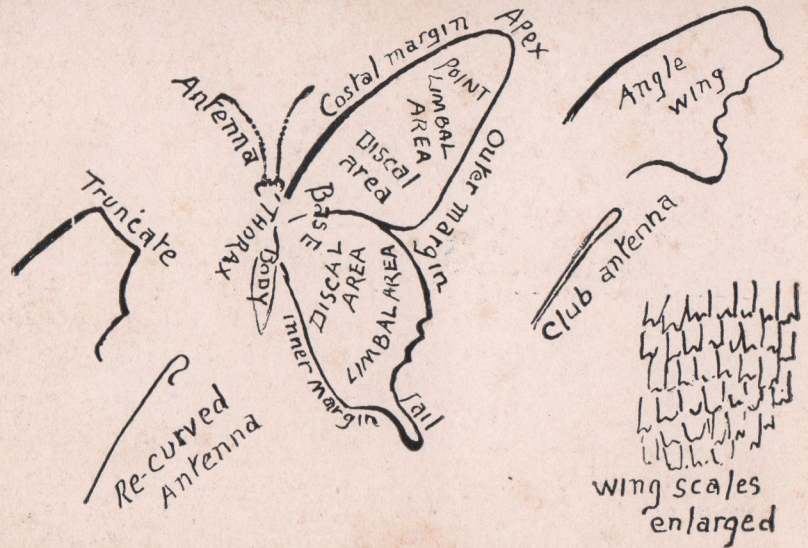 Apex
Costal margin
Antenna
POINT
LIMBAL
AREA
Discal
area
Outer margin
Angle
wing
Truncate
THORAX
BASE
Body
DISCAL
AREA
LIMBAL AREA
Inner margin
Tail
Club antenna
Re-curved
Antenna
wing scales
enlarged